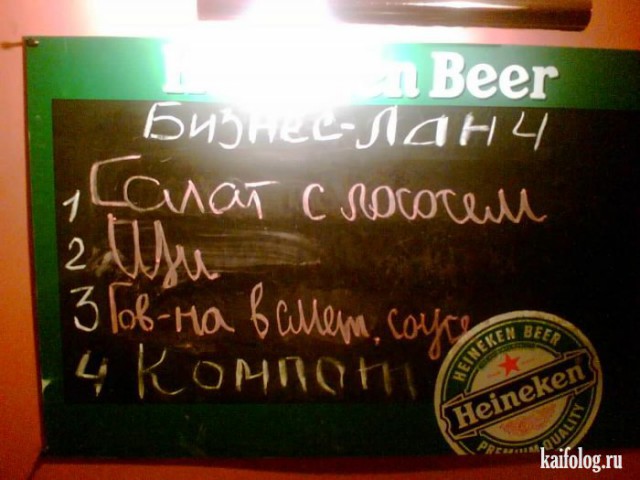 Heineken Beer
БИЗНЕС-ЛАНЧ
1 Салат с лососем
2 Щи
3 Гов-на в смет. соусе
4 Компот
HEINEKEN BEER
Heineken
PREMIUM QUALITY
kaifolog.ru